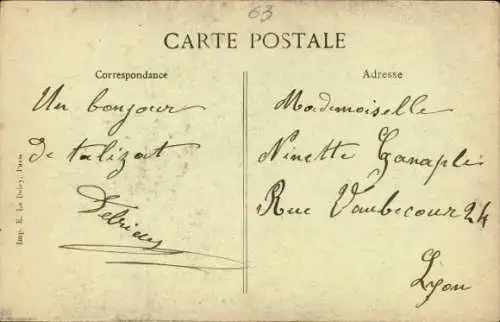 63
CARTE POSTALE
Correspondance
Un bonjour
de talizat
Adresse
Mademoiselle
Ninette
Rue Vaubecour 24
Lyon
Imp. E. Le Deley, Paris